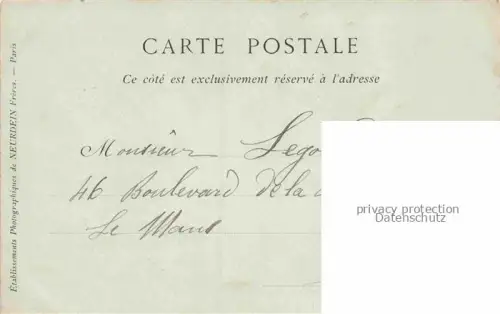 CARTE POSTALE
Ce côté est exclusivement réservé à l'adresse
Monsieur Lego
46 Boulevard de la
Le Mans
Établissements Photographiques de NEURDEIN Frères. — Paris
privacy protection
Datenschutz